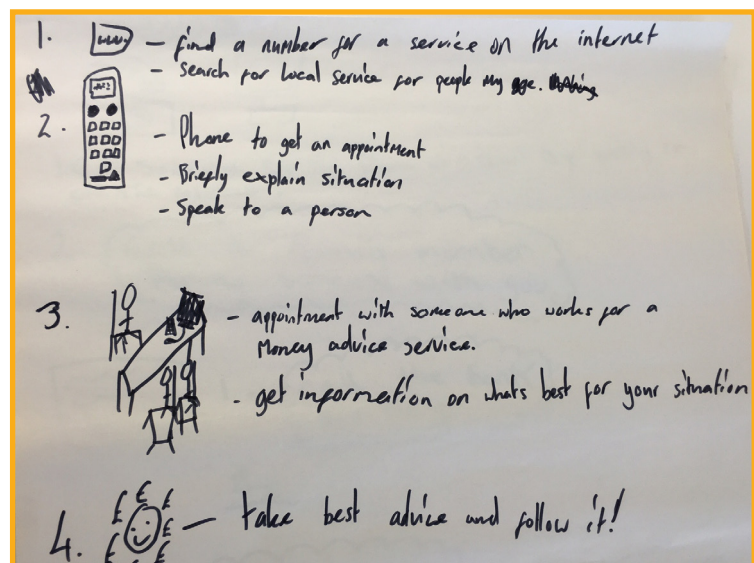 1. www. - find a number for a service on the internet
- Search for local service for people my age.
2. - Phone to get an appointment
- Briefly explain situation
- Speak to a person
3. - appointment with someone who works for a
Money advice service.
- get information on whats best for your situation
4. £ £ £ £ £ £ £ - take best advice and follow it!